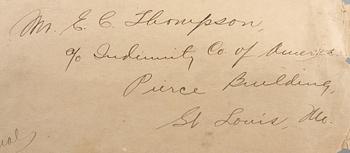 Mr. E. C. Thompson,
c/o Indemnity Co of America
Pierce Building,
St Louis, Mo.